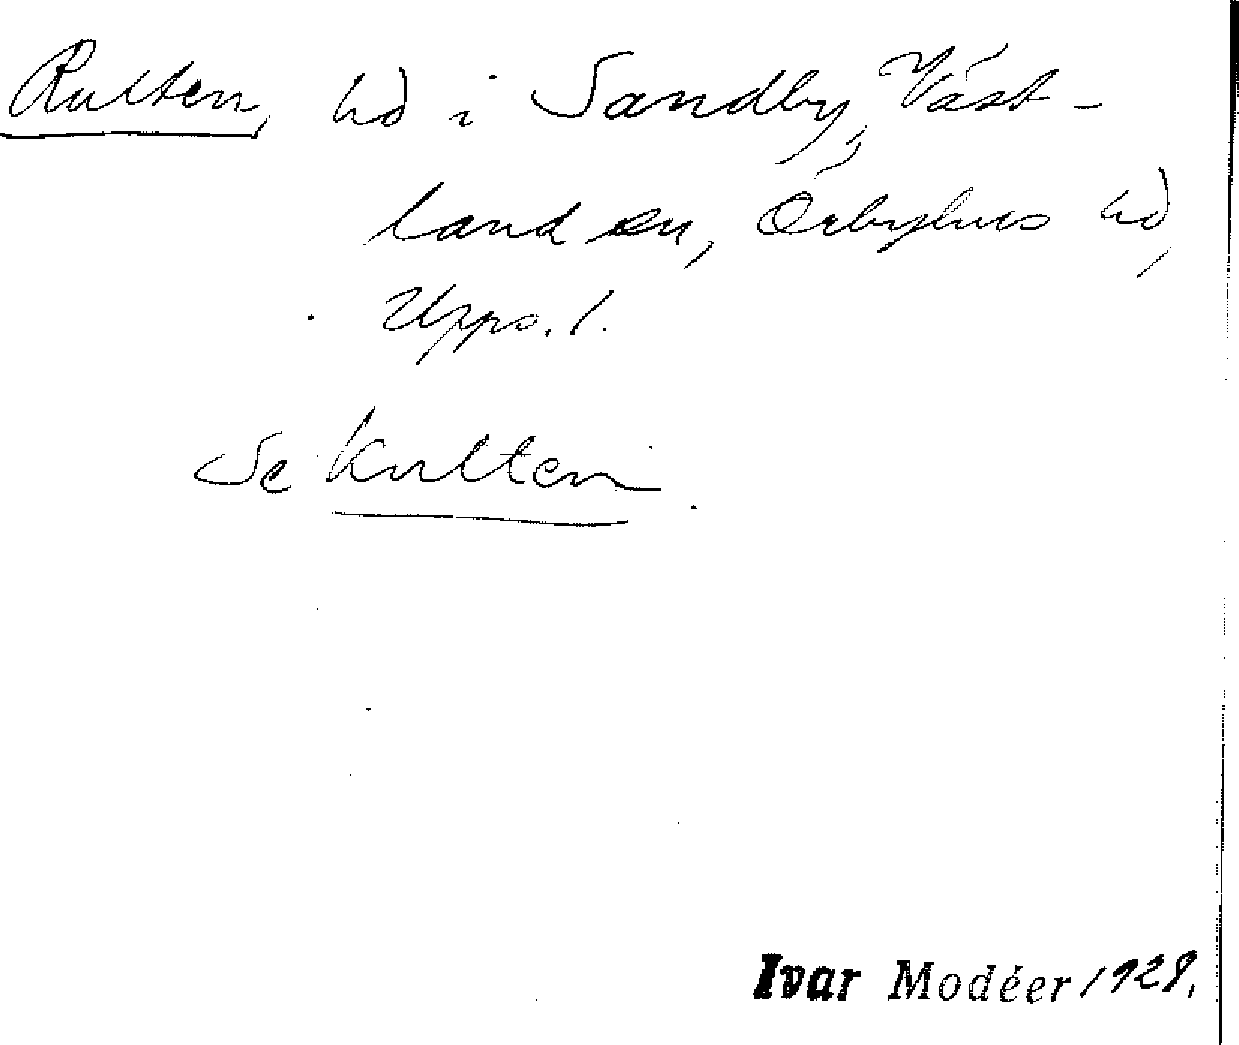 Rulten, hd i Sandby, Väst-
land sn, Örbyhus hd,
Upps. l.
Se Kulten.
Ivar Modéer 1928.